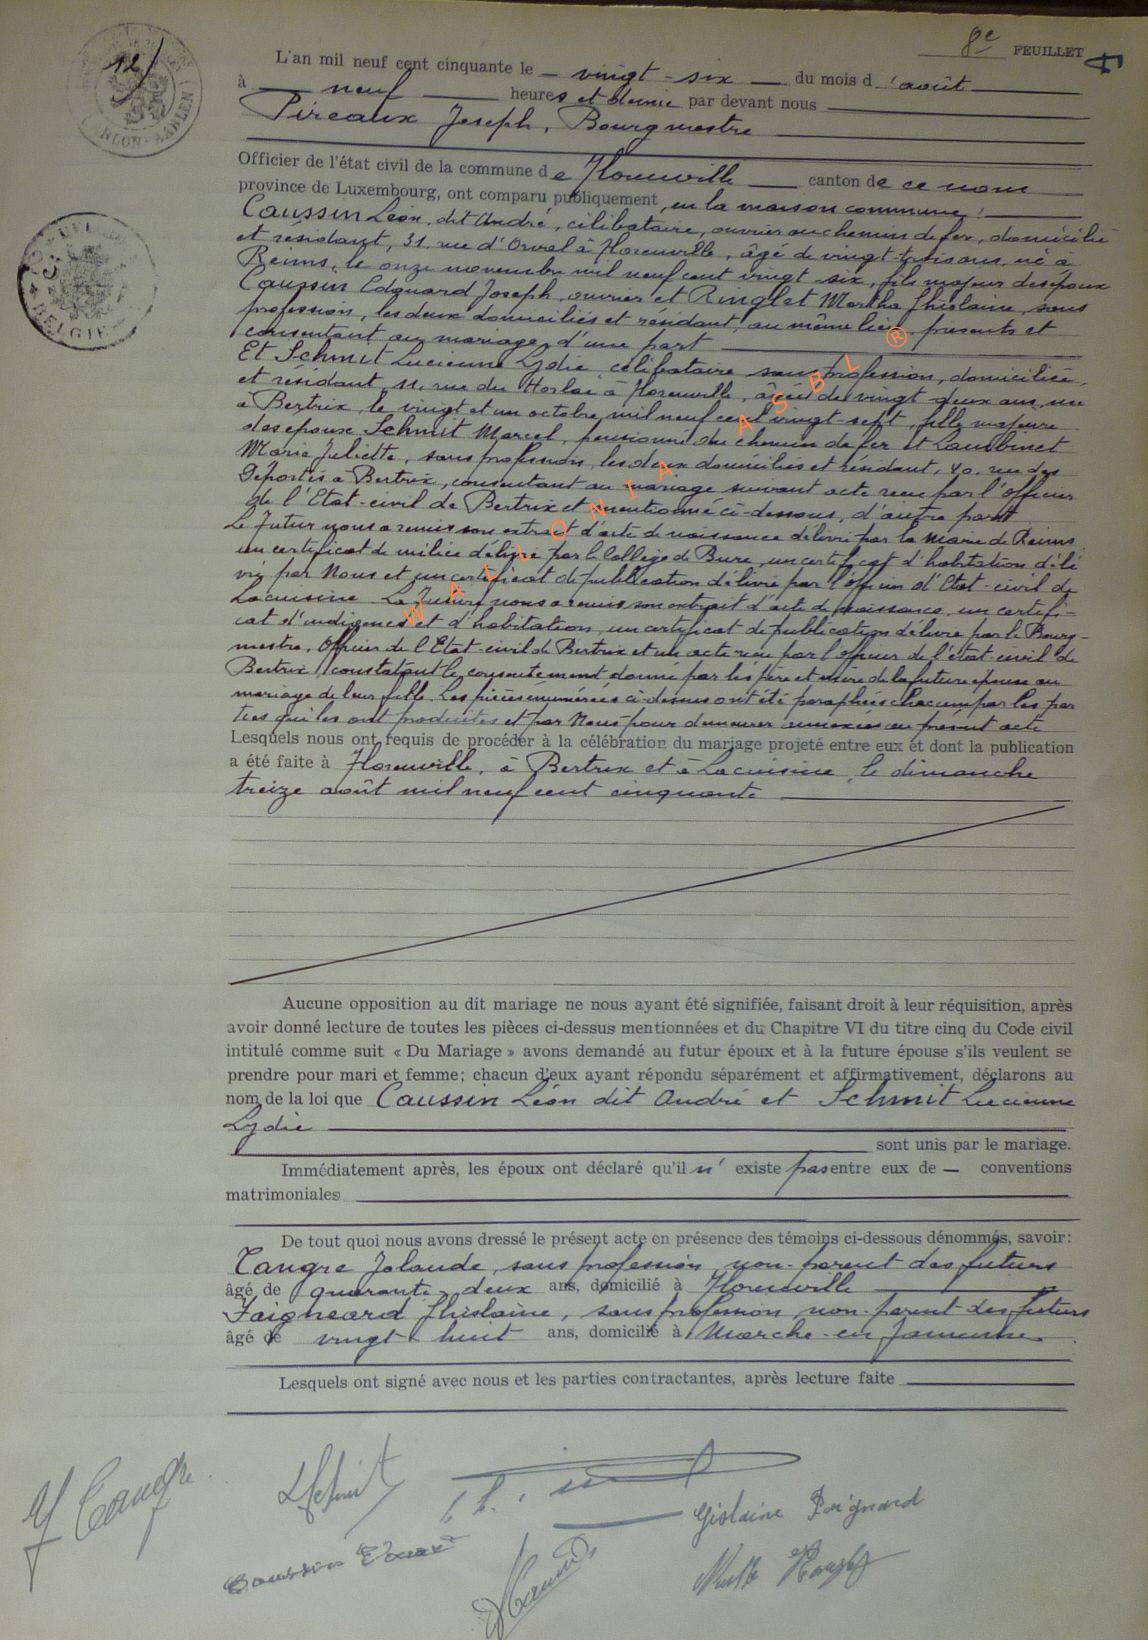 8e FEUILLET
12
L'an mil neuf cent cinquante le vingt-six du mois d'août
à neuf heures et demie par devant nous
Pireaux Joseph, Bourgmestre
Officier de l'état civil de la commune de Florenville canton de ce nom
province de Luxembourg, ont comparu publiquement, en la maison commune:
Caussin Léon, dit André, célibataire, ouvrier au chemin de fer, domicilié
et résidant, 31, rue d'Orval à Florenville, âgé de vingt-trois ans, né à
Reims, le onze novembre mil neuf cent vingt-six, fils majeur des époux
Caussin Edouard Joseph, ouvrier et Ringlet Martha Ghislaine, sans
profession, les deux domiciliés et résidant, au même lieu, présents et
consentant au mariage, d'une part
Et Schmit Lucienne Lydie, célibataire sans profession, domiciliée,
et résidant, 11, rue du à Florenville, âgée de vingt-deux ans, née
à Bertrix, le vingt et un octobre mil neuf cent vingt-sept, fille majeure
des époux Schmit Marcel, pensionné du chemin de fer et
Marie Juliette, sans profession, les deux domiciliés et résidant, 40, rue des
Déportés à Bertrix, consentant au mariage suivant acte reçu par l'officier
de l'Etat-civil de Bertrix et mentionné ci-dessous, d'autre part
Le futur nous a remis son extrait d'acte de naissance délivré par la Mairie de Reims,
un certificat de milice délivré par le Collège de Bure, un certificat d'habitation déli
vré par Nous et un certificat de publication délivré par l'officier d'Etat-civil de
Lacuisine. La future nous a remis son extrait d'acte de naissance, un certifi-
cat d'indigence et d'habitation, un certificat de publication délivré par le Bourg-
mestre, Officier de l'Etat-civil de Bertrix et un acte reçu par l'officier de l'état-civil de
Bertrix, constatant le consentement donné par les père et mère de la future épouse au
mariage de leur fille. Les pièces énumérées ci-dessus ont été paraphées chacune par les par
ties qui les ont produites et par Nous pour demeurer annexées au présent acte
Lesquels nous ont requis de procéder à la célébration du mariage projeté entre eux et dont la publication
a été faite à Florenville, à Bertrix et à Lacuisine, le dimanche
treize août mil neuf cent cinquante
Aucune opposition au dit mariage ne nous ayant été signifiée, faisant droit à leur réquisition, après
avoir donné lecture de toutes les pièces ci-dessus mentionnées et du Chapitre VI du titre cinq du Code civil
intitulé comme suit « Du Mariage » avons demandé au futur époux et à la future épouse s'ils veulent se
prendre pour mari et femme; chacun d'eux ayant répondu séparément et affirmativement, déclarons au
nom de la loi que Caussin Léon dit André et Schmit Lucienne
Lydie
sont unis par le mariage.
Immédiatement après, les époux ont déclaré qu'il n'existe pas entre eux de conventions
matrimoniales
De tout quoi nous avons dressé le présent acte en présence des témoins ci-dessous dénommés, savoir:
Tangre Jolande, sans profession, non-parent des futurs
âgé de quarante-deux ans, domicilié à Florenville
Faigneard Ghislaine, sans profession, non-parent des futurs
âgé de vingt-huit ans, domicilié à Marche-en-Famenne
Lesquels ont signé avec nous et les parties contractantes, après lecture faite
WALLONIA ASBL ®
ARLON-AARLEN
BELGIE
Y Tangre
LSchmit
Gislaine
Caussin